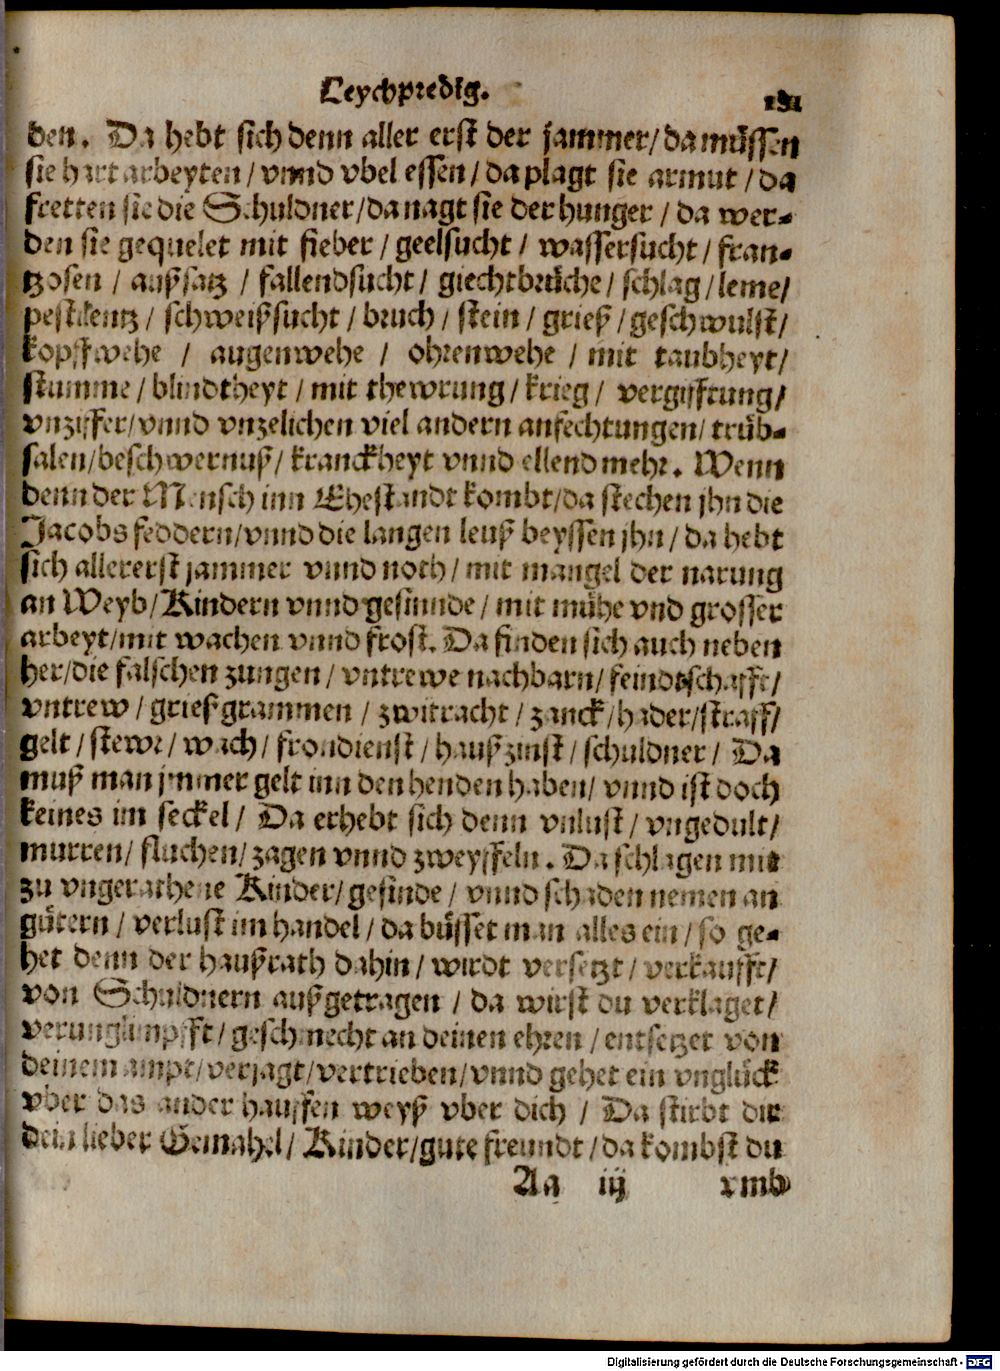 Leychpredig. 181
den. Da hebt sich denn aller erst der jammer/ da müssen
sie hart arbeyten/ vnnd vbel essen/ da plagt sie armut/ da
fretten sie die Schuldner/ da nagt sie der hunger/ da wer-
den sie gequelet mit fieber/ geelsucht/ wassersucht/ fran-
tzosen/ außsatz/ fallendsucht/ giechtbrüche/ schlag/ leme/
pestilentz/ schweißsucht/ bruch/ stein/ grieß/ geschwulst/
kopffwehe/ augenwehe/ ohrenwehe/ mit taubheyt/
stumme/ blindtheyt/ mit thewrung/ krieg/ vergifftung/
vnziffer/ vnnd vnzelichen viel andern anfechtungen/ trüb-
salen/ beschwernuß/ kranckheyt vnnd ellend mehr. Wenn
denn der Mensch inn Ehestandt kombt/ da stechen jhn die
Jacobs feddern/ vnnd die langen leuß beyssen jhn/ da hebt
sich allererst jammer vnnd noth/ mit mangel der narung
an Weyb/ Kindern vnnd gesinnde/ mit mühe vnd grosser
arbeyt/ mit wachen vnnd frost. Da finden sich auch neben
her/ die falschen zungen/ vntrewe nachbarn/ feindtschafft/
vntrew/ grießgrammen/ zwitracht/ zanck/ hader/ straff/
gelt/ stewr/ wach/ frondienst/ haußzinst/ schuldner/ Da
muß man jmmer gelt inn den henden haben/ vnnd ist doch
keines im seckel/ Da erhebt sich denn vnlust/ vngedult/
murren/ fluchen/ zagen vnnd zweyffeln. Da schlagen mit
zu vngerathene Kinder/ gesinde/ vnnd schaden nemen an
gütern/ verlust im handel/ da büsset man alles ein/ so ge-
het denn der haußrath dahin/ wirdt versetzt/ verkaufft/
von Schuldnern außgetragen/ da wirst du verklaget/
verunglimpfft/ geschmecht an deinen ehren/ entsetzet von
deinem ampt/ verjagt/ vertrieben/ vnnd gehet ein vnglück
vber das ander hauffen weyß vber dich/ Da stirbt dir
dein lieber Gemahel/ Kinder/ gute freundt/ da kombst du
Aa iij vmb
Digitalisierung gefördert durch die Deutsche Forschungsgemeinschaft - DFG